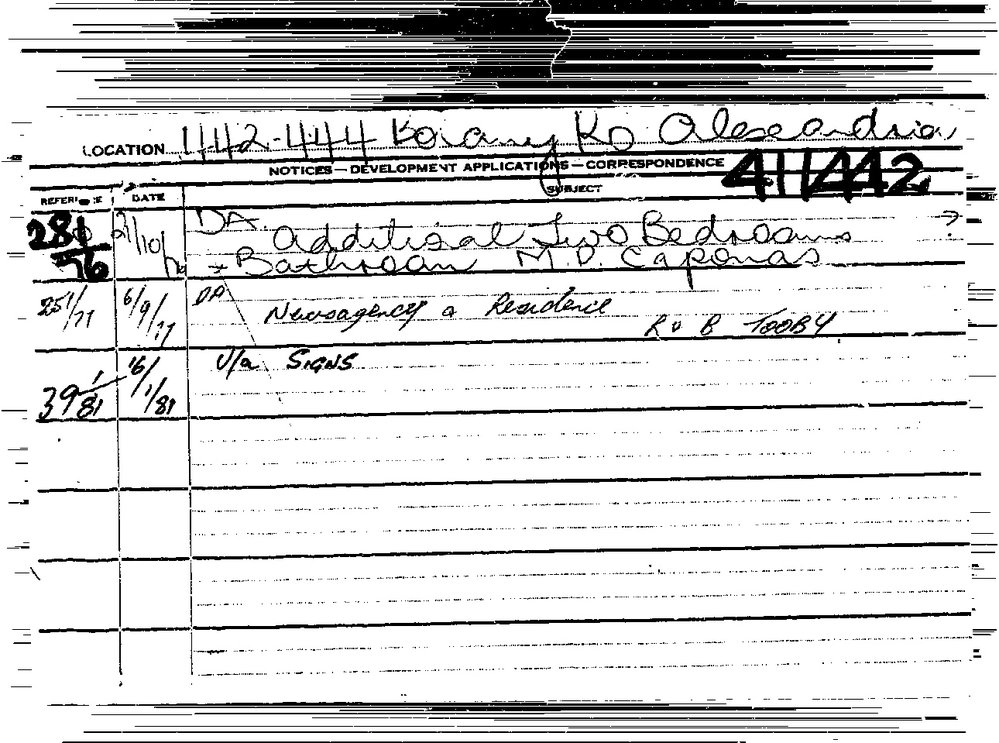 LOCATION 442-444 Botany Rd Alexandria
NOTICES — DEVELOPMENT APPLICATIONS — CORRESPONDENCE
411/442
SUBJECT
DATE
76 21/10/76 DA. Additional Two Bedrooms →?
+ Bathroom M. D. Caponas
251/77 6/9/77 DA Newsagency & Residence
R & B TOOBY
39/81 16/1/81 V/a SIGNS